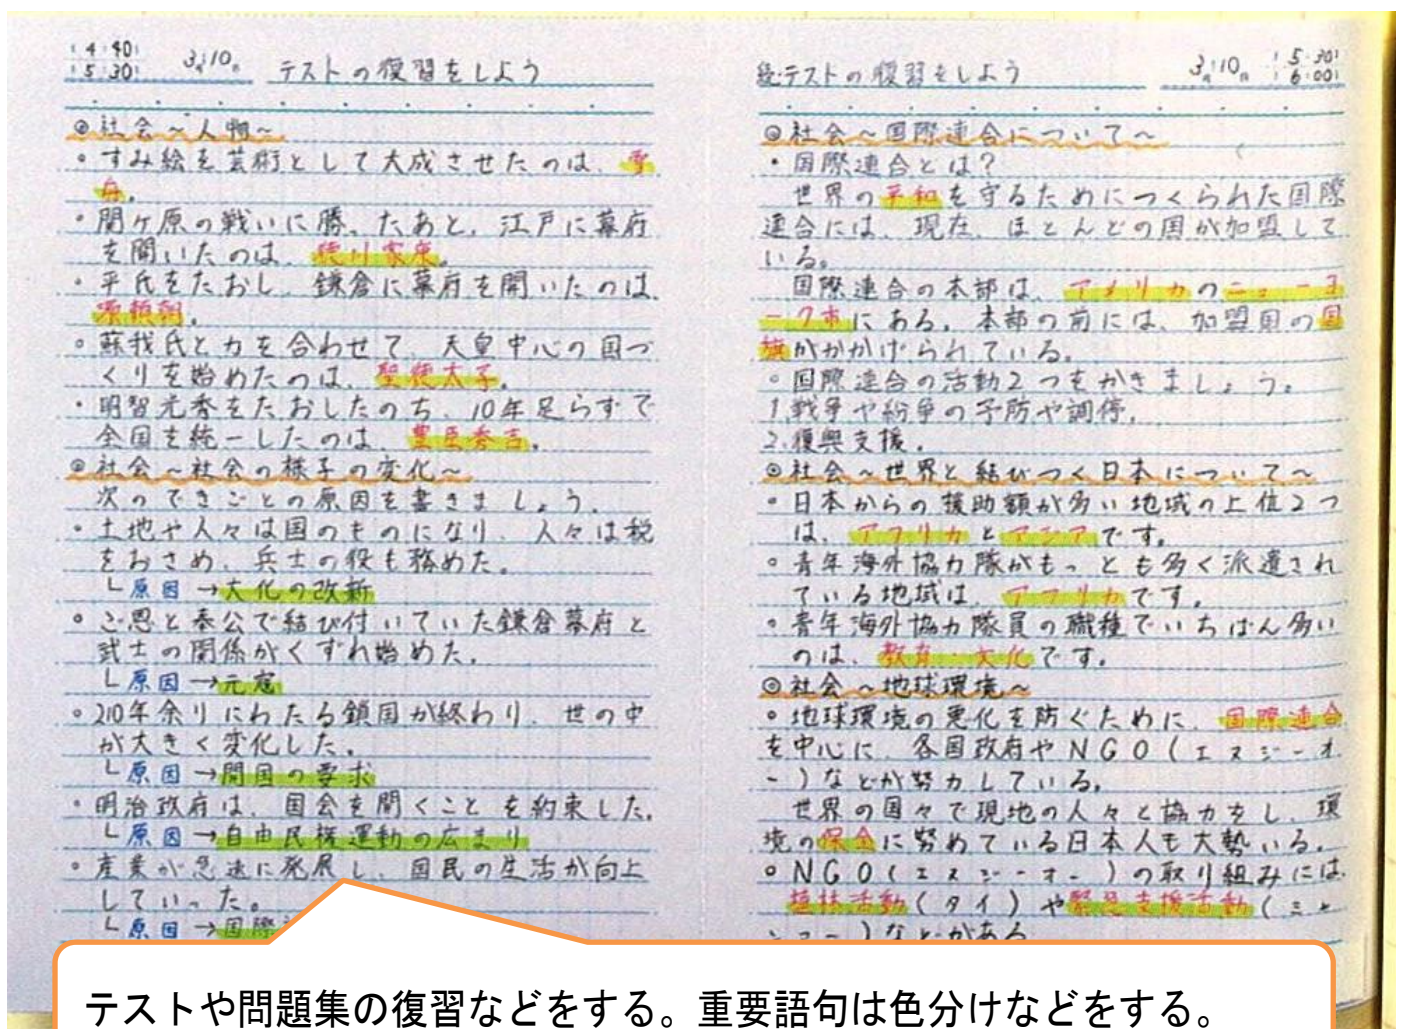 4:40
5:30
3月10日
テストの復習をしよう
◎社会～人物～
・すみ絵を芸術として大成させたのは、雪
舟。
・関ヶ原の戦いに勝ったあと、江戸に幕府
を開いたのは、徳川家康。
・平氏をたおし、鎌倉に幕府を開いたのは、
源頼朝。
・蘇我氏と力を合わせて、天皇中心の国づ
くりを始めたのは、聖徳太子。
・明智光秀をたおしたのち、10年足らずで
全国を統一したのは、豊臣秀吉。
◎社会～社会の様子の変化～
次のできごとの原因を書きましょう。
・土地や人々は国のものになり、人々は税
をおさめ、兵士の役も務めた。
└原因→大化の改新
・ご恩と奉公で結び付いていた鎌倉幕府と
武士の関係がくずれ始めた。
└原因→元寇
・210年余りにわたる鎖国が終わり、世の中
が大きく変化した。
└原因→開国の要求
・明治政府は、国会を開くことを約束した。
└原因→自由民権運動の広まり
・産業が急速に発展し、国民の生活が向上
していった。
└原因→国際
続テストの復習をしよう
3月10日
5:30
6:00
◎社会～国際連合について～
・国際連合とは?
世界の平和を守るためにつくられた国際
連合には、現在、ほとんどの国が加盟して
いる。
国際連合の本部は、アメリカのニューヨ
ーク市にある。本部の前には、加盟国の国
旗がかかげられている。
・国際連合の活動2つをかきましょう。
1.戦争や紛争の予防や調停。
2.復興支援。
◎社会～世界と結びつく日本について～
・日本からの援助額が多い地域の上位2つ
は、アフリカとアジアです。
・青年海外協力隊がもっとも多く派遣され
ている地域は、アフリカです。
・青年海外協力隊員の職種でいちばん多い
のは、教育・文化です。
◎社会～地球環境～
・地球環境の悪化を防ぐために、国際連合
を中心に、各国政府やNGO(エヌジーオ
ー)などが努力している。
世界の国々で現地の人々と協力をし、環
境の保全に努めている日本人も大勢いる。
・NGO(エヌジーオー)の取り組みには
植林活動(タイ)や緊急支援活動(ミャ
ンマー)などがある
テストや問題集の復習などをする。重要語句は色分けなどをする。